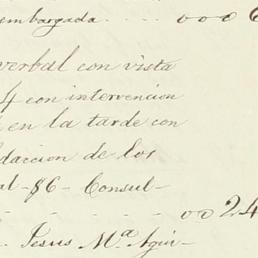 embargada . . . 0 0 0 6
verbal con vista
4 con intervencion
en la tarde con
daccion de los
al - $6 - Consul -
- - - - - - 0 0 24
Jesus Mª Agui-